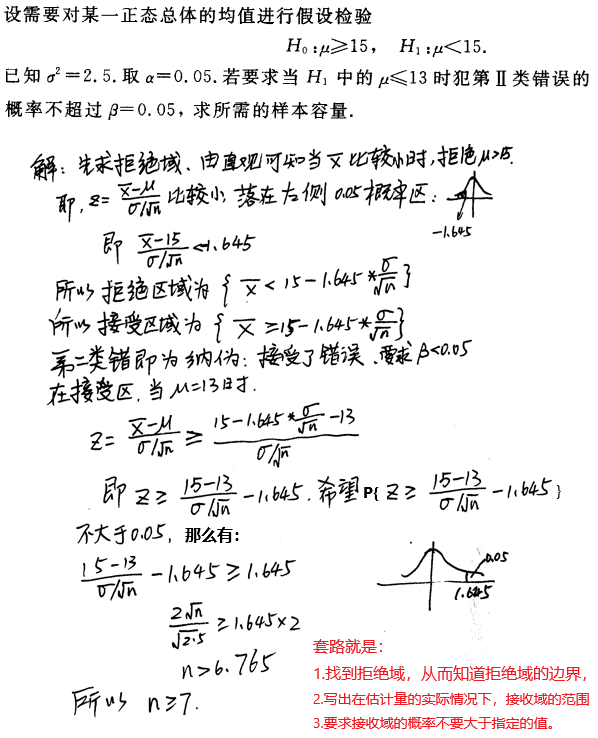 设需要对某一正态总体的均值进行假设检验
H₀:μ≥15, H₁:μ<15.
已知 σ²=2.5.取 α=0.05.若要求当 H₁ 中的 μ≤13 时犯第Ⅱ类错误的
概率不超过 β=0.05,求所需的样本容量.
解:先求拒绝域、由直观可知当 x̄ 比较小时,拒绝 μ>15.
即, z= (x̄-μ)/(σ/√n) 比较小, 落在左侧 0.05 概率区:
-1.645
即 (x̄-15)/(σ/√n) <-1.645
所以 拒绝区域为 { x̄ < 15-1.645*σ/√n }
所以 接受区域为 { x̄ ≥15-1.645*σ/√n }
第二类错即为纳伪: 接受了错误、要求 β<0.05
在接受区, 当 μ=13时.
Z= (x̄-μ)/(σ/√n) ≥ (15-1.645*σ/√n-13)/(σ/√n)
即 Z≥ (15-13)/(σ/√n) -1.645. 希望 P{ Z≥ (15-13)/(σ/√n) -1.645 }
不大于0.05, 那么有:
(15-13)/(σ/√n) -1.645≥1.645
0.05
1.645
2√n/√2.5 ≥1.645×2
n>6.765
所以 n≥7.
套路就是:
1.找到拒绝域,从而知道拒绝域的边界,
2.写出在估计量的实际情况下,接收域的范围
3.要求接收域的概率不要大于指定的值。